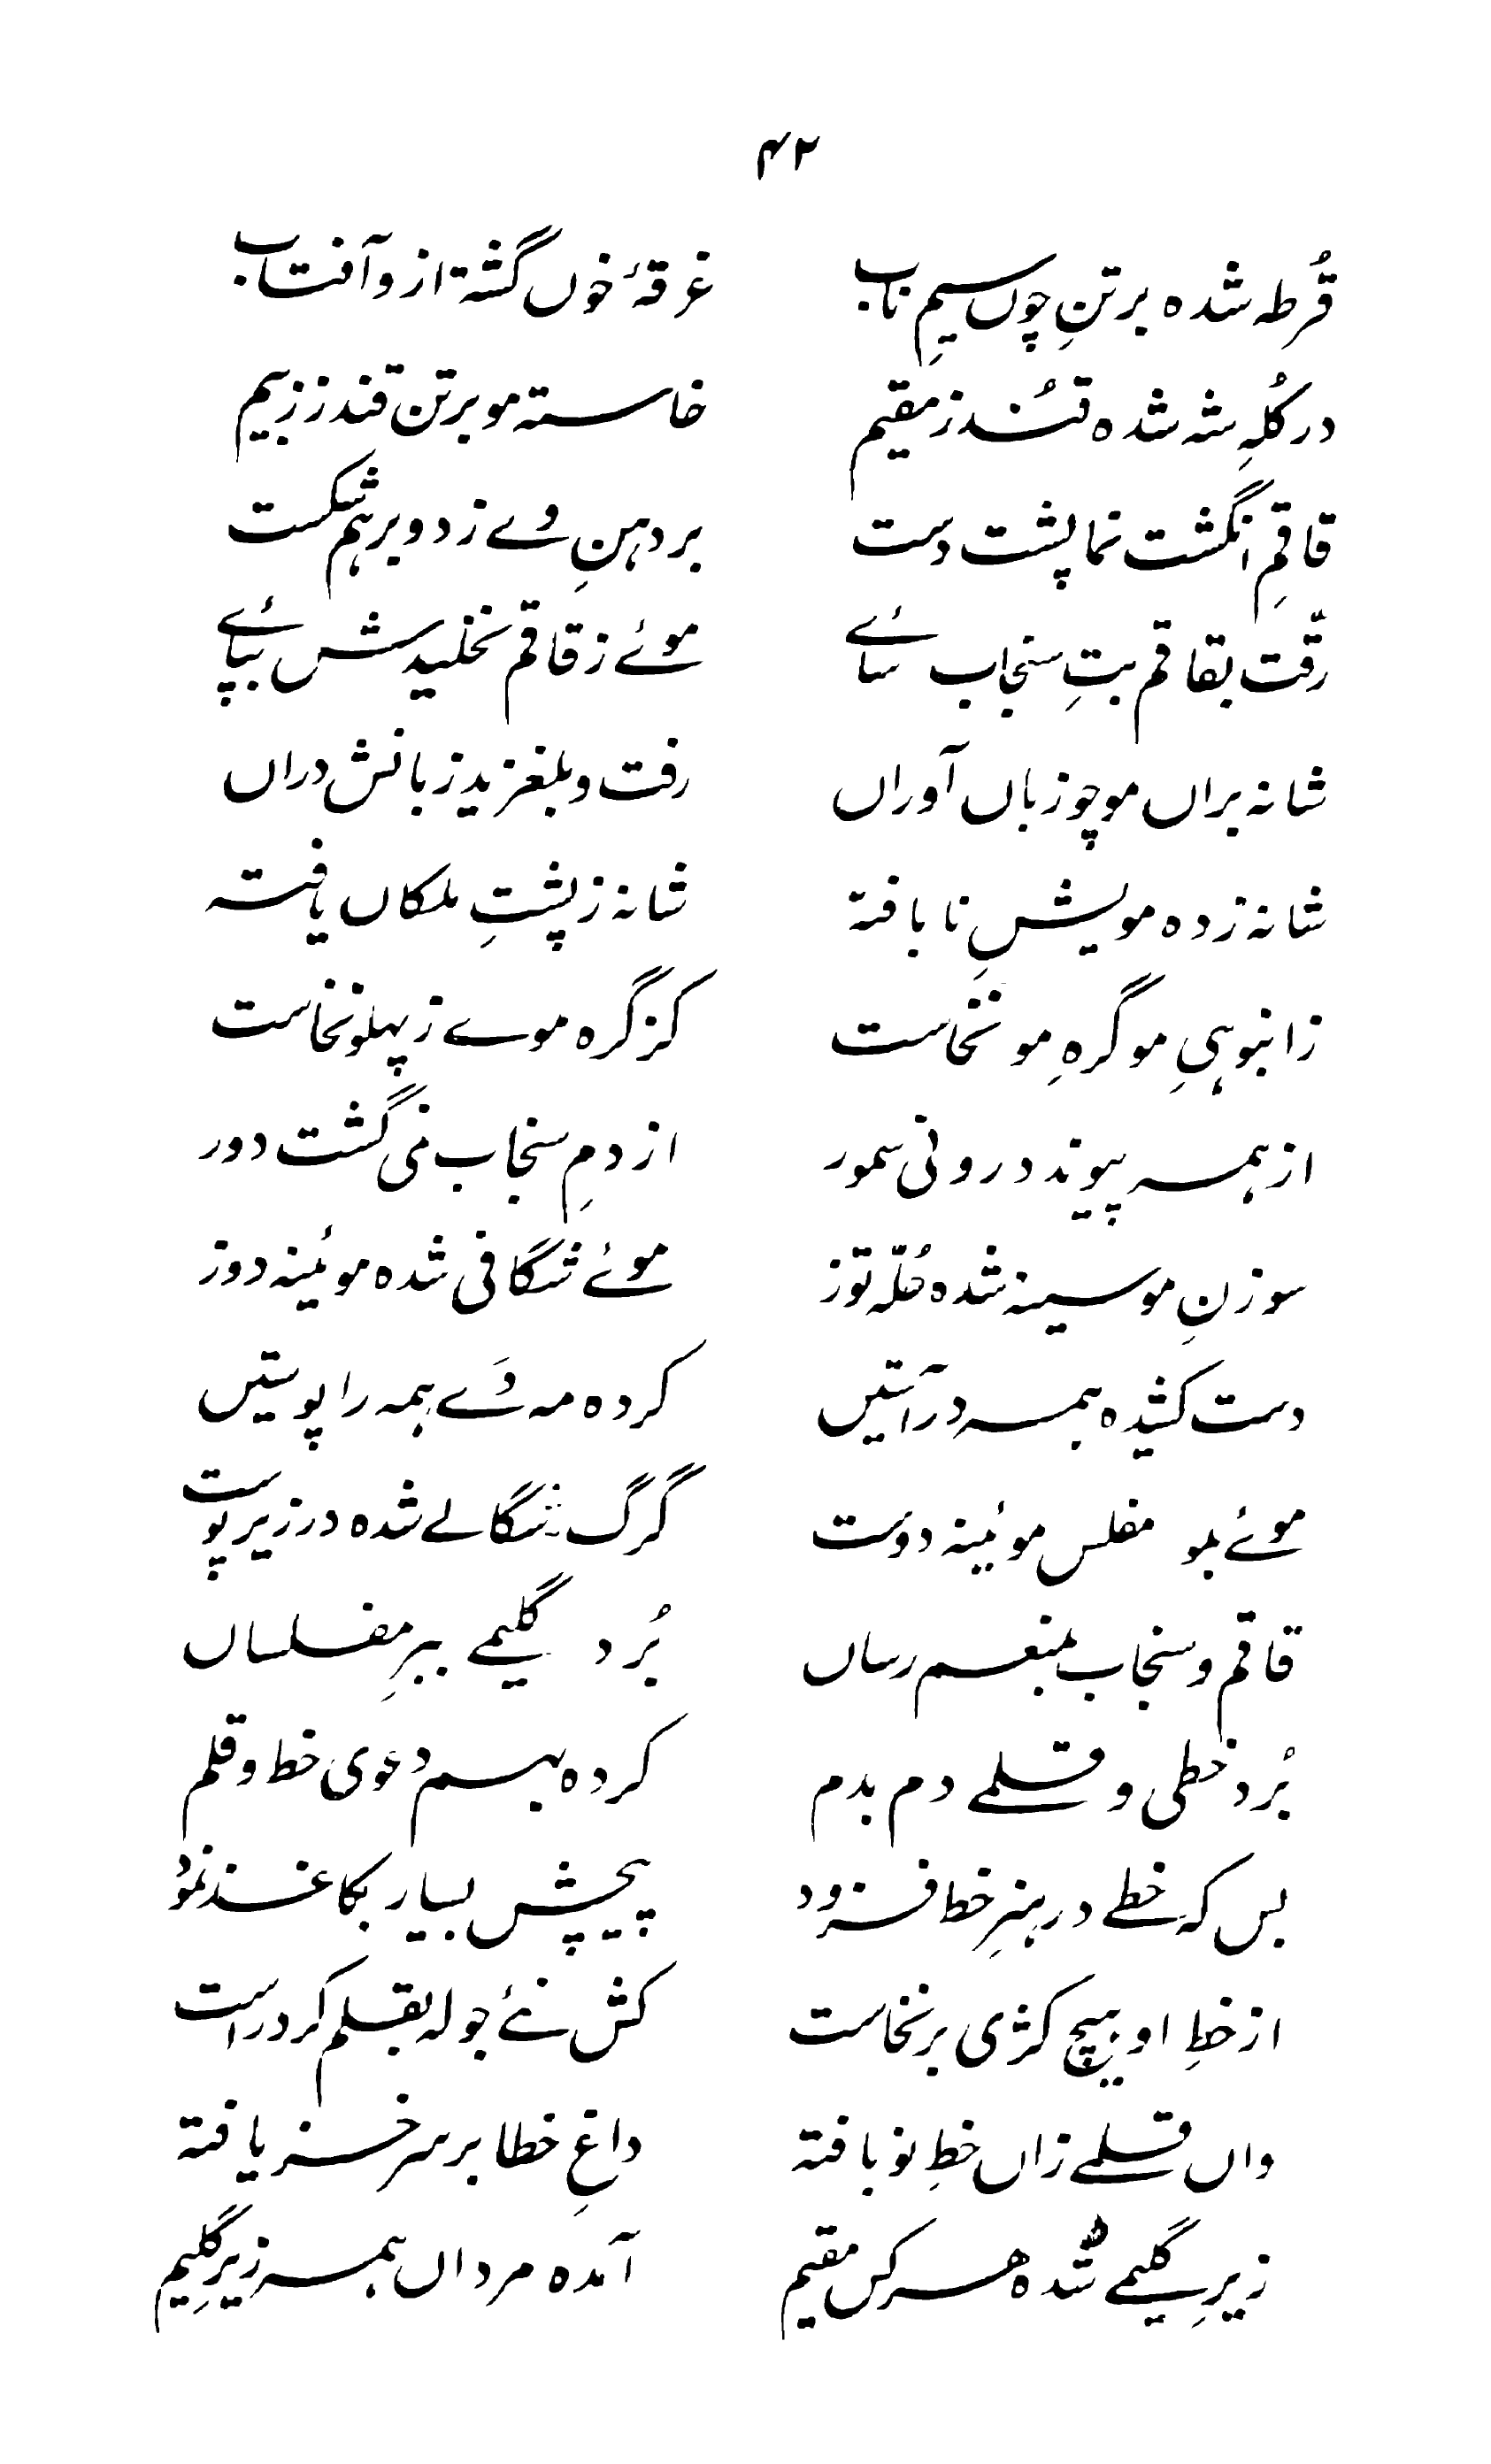 ۴۲
قُرطہ شدہ بر تنِ چوں سیمِ ناب غرقۂ خوں گشتہ از و آفتاب
در کُلہِ شہ شدہ قُندز مقیم خاستہ مو بر تن قندز ز بیم
قاقمِ انگشت نما پشت دست بر دہنِ وے زد و برہم شکست
رقّت بقاقم بتِ سنجاب سائے موئے ز قاقم نخلیدش بپائے
شانہ براں مو چو زباں آوراں رفت و بلغزید زبانش دراں
شانہ زدہ مویشِ نا بافتہ شانہ ز پشتِ ملکاں یافتہ
ز انبوہیِ مو گرہِ مو نخاست کز گرہ موے ز پہلو نخاست
از ہمہ پیوند درونی سمور از دمِ سنجاب نمی گشت دور
سوزنِ موسینہ شدہ حُلّہ توز موئے شگافی شدہ موئینہ دوز
دست کشیدہ ہمہ در آستیں کردہ مہ دَے ہمہ را پوستیں
موئے بمو مفلس موئینہ دوست گرگ شگالے شدہ در زیر پوست
قاقم و سنجاب بمنعم رساں بُرد گلیمے ببرِ مفلساں
بُرد خطی و قلمے دم بدم کردہ بہم دعوی خط و قلم
بس کہ خطے در ہنرِ خط فزود پیچش بسیار بکاغذ نمود
از خطِ او ہیچ کژی برنخاست کش نئے جولہ بقلم کرد راست
واں قلمے زاں خطِ نو بافتہ داغِ خطا بر سر خز یافتہ
زیرِ گلیمے شدہ ہر کس مقیم آمدہ مرداں ہمہ زیرِ گلیم